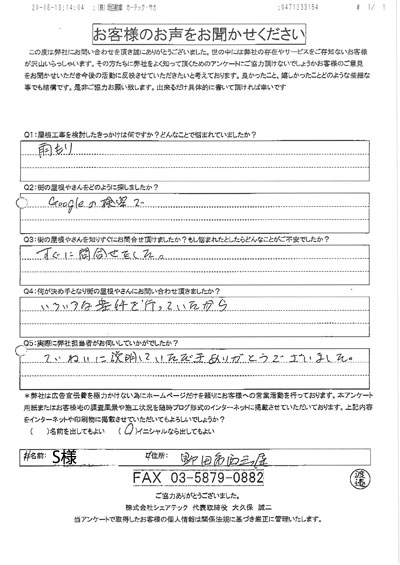 20-08-18;14:04 ;0471233154 # 1/ 1
お客様のお声をお聞かせください
この度は弊社にお問い合わせを頂き誠にありがとうございました。世の中には弊社の存在やサービスをご存知ないお客様
が沢山いらっしゃいます。その方たちに弊社をよく知って頂くためのアンケートにご協力頂けないでしょうかお客様のご意見
をお聞かせいただき今後の活動に反映させていただきたいと考えております。良かったこと、嬉しかったことどのような些細な
事でも結構です。是非ご協力お願い致します。出来るだけ具体的に書いて頂ければ幸いです
Q1:屋根工事を検討したきっかけは何ですか？どんなことで悩まれていましたか？
雨もり
Q2:街の屋根やさんをどのように探しましたか？
Googleの検索で
Q3:街の屋根やさんを知りすぐにお問合せ頂けましたか？もし悩まれたとしたらどんなことがご不安でしたか？
すぐに問合せをした。
Q4:何が決め手となり街の屋根やさんにお問い合わせ頂きましたか？
いろいろな条件で行っていたから
Q5:実際に弊社担当者がお伺いしていかがでしたか？
ていねいに説明していただきありがとうございました。
*弊社は広告宣伝費を極力かけない為にホームページだけを頼りにお客様への営業活動を行っております。本アンケート
用紙またはお客様宅の調査風景や施工状況を随時ブログ形式のインターネットに掲載させていただいております。上記内容
をインターネットや印刷物に掲載させていただいてもよろしいでしょうか？
( )名前を出してもよい (○)イニシャルなら出してもよい
お名前: S様 ご住所: 野田市西三ヶ尾
FAX 03-5879-0882
渡邊
ご協力ありがとうございました。
株式会社シェアテック 代表取締役 大久保 誠二
当アンケートで取得したお客様の個人情報は関係法規に基づき厳正に管理いたします。